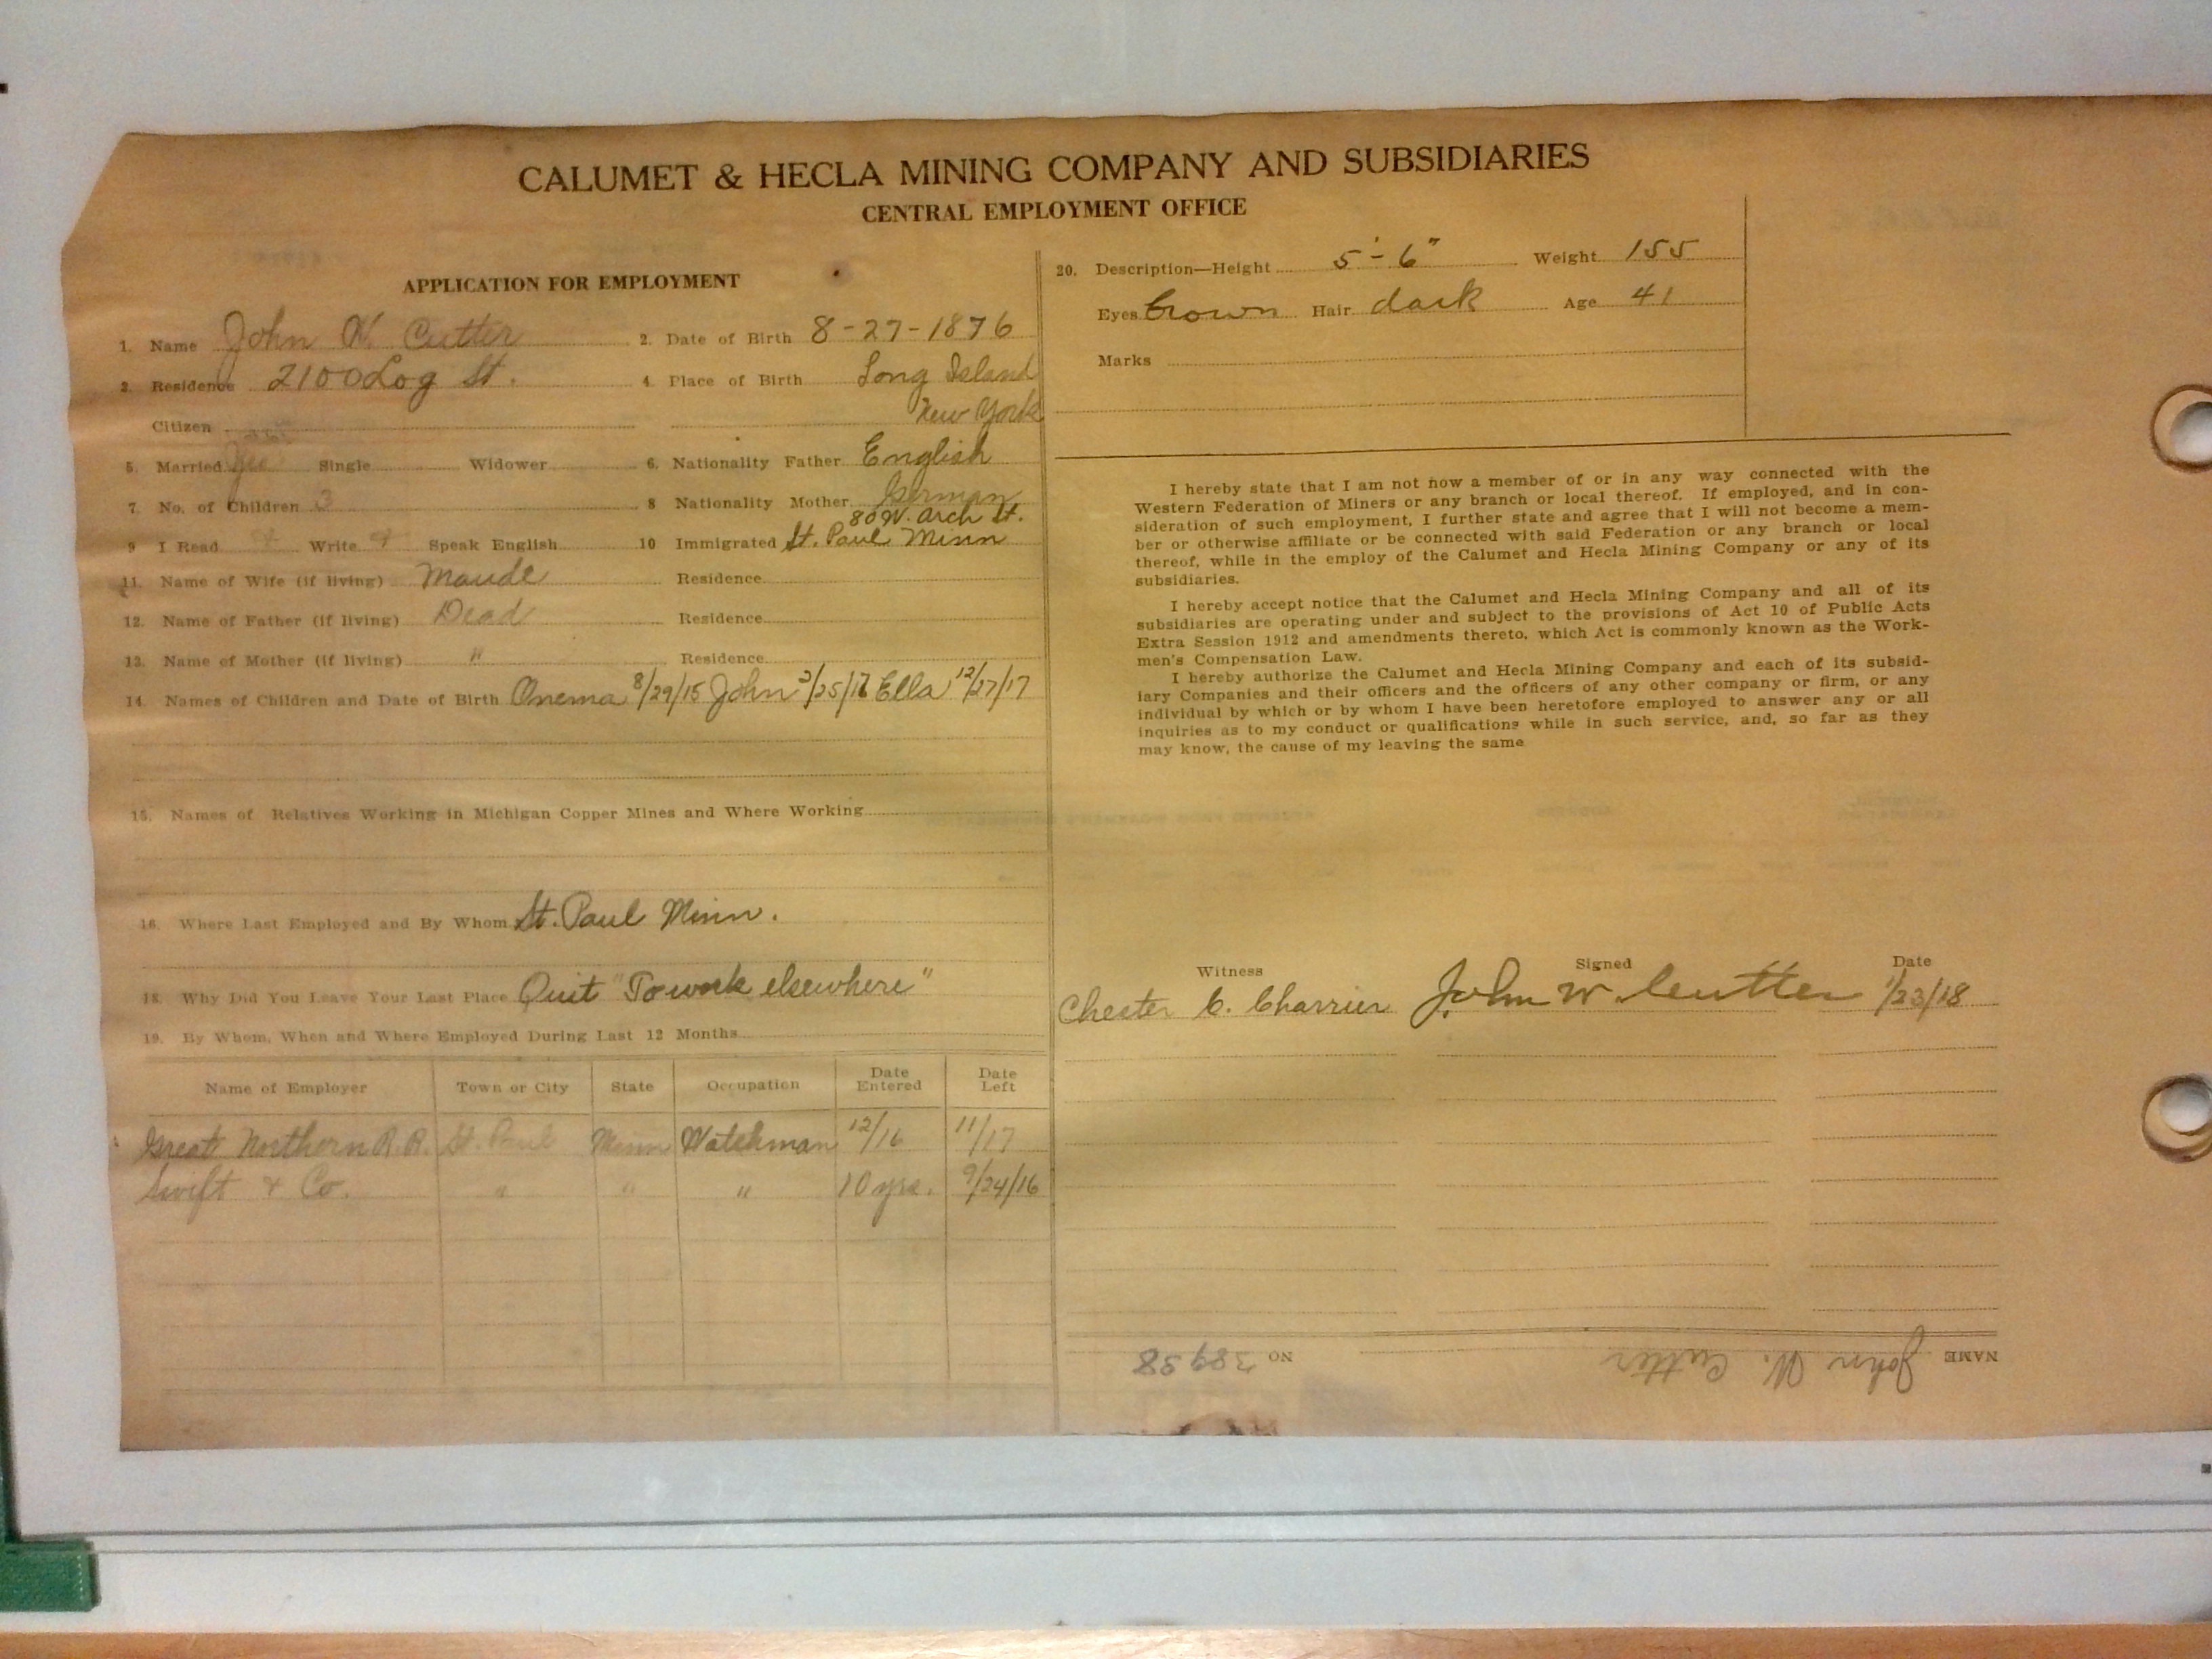 CALUMET & HECLA MINING COMPANY AND SUBSIDIARIES
CENTRAL EMPLOYMENT OFFICE
APPLICATION FOR EMPLOYMENT
1. Name John W. Cutter 2. Date of Birth 8-27-1876
3. Residence 2100 Log St. 4. Place of Birth Long Island
Citizen New York
5. Married Yes Single Widower 6. Nationality Father English
7. No. of Children 3 8 Nationality Mother German
80 W. Arch St.
9 I Read Write Speak English 10 Immigrated St. Paul Minn
11. Name of Wife (if living) Maude Residence
12. Name of Father (if living) Dead Residence
13. Name of Mother (if living) " Residence
14. Names of Children and Date of Birth Onema 8/29/15 John 2/25/17 Ella 12/27/17
15. Names of Relatives Working in Michigan Copper Mines and Where Working
16. Where Last Employed and By Whom St. Paul Minn.
18. Why Did You Leave Your Last Place Quit "To work elsewhere"
19. By Whom, When and Where Employed During Last 12 Months
Name of Employer Town or City State Occupation Date Entered Date Left
Great Northern R.R. St. Paul Minn Watchman 12/16 11/17
Swift & Co. " " " 10 yrs. 9/24/16
20. Description—Height 5'-6" Weight 155
Eyes brown Hair dark Age 41
Marks
I hereby state that I am not now a member of or in any way connected with the
Western Federation of Miners or any branch or local thereof. If employed, and in con-
sideration of such employment, I further state and agree that I will not become a mem-
ber or otherwise affiliate or be connected with said Federation or any branch or local
thereof, while in the employ of the Calumet and Hecla Mining Company or any of its
subsidiaries.
I hereby accept notice that the Calumet and Hecla Mining Company and all of its
subsidiaries are operating under and subject to the provisions of Act 10 of Public Acts
Extra Session 1912 and amendments thereto, which Act is commonly known as the Work-
men's Compensation Law.
I hereby authorize the Calumet and Hecla Mining Company and each of its subsid-
iary Companies and their officers and the officers of any other company or firm, or any
individual by which or by whom I have been heretofore employed to answer any or all
inquiries as to my conduct or qualifications while in such service, and, so far as they
may know, the cause of my leaving the same
Witness Signed Date
Chester C. Charrier John W. Cutter 1/23/18
NAME John W. Cutter NO 38938